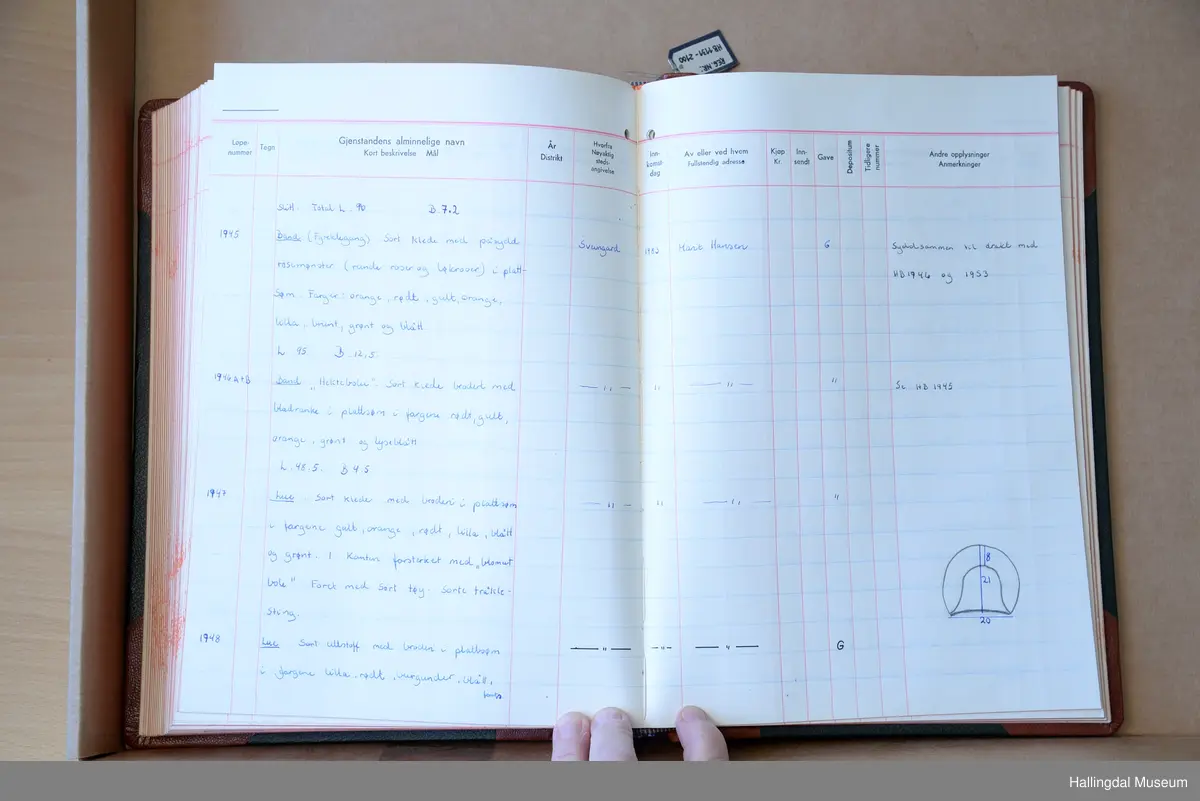 REG. NR.:
HB 1131 - 2100
Løpe-nummer
Tegn
Gjenstandens alminnelige navn
Kort beskrivelse Mål
År
Distrikt
Hvorfra
Nøyaktig
steds-
angivelse
Inn-
komst-
dag
Av eller ved hvem
Fullstendig adresse
Kjøp
Kr.
Inn-
sendt
Gave
Depositum
Tidligere
nummer
Andre opplysninger
Anmerkninger
slått. Total L. 90 B 7.2
1945 Bånd (Fyreklegang) Sort klede med påsydd Svangard 1983 Marit Hansen G Sydd sammen til drakt med
rosemønster (runde roser og løkroser) i platt- HB 1946 og 1953
søm. Farger: orange, rødt, gult, orange,
lilla, brunt, grønt og blått
L 95 B 12,5
1946 a+b Bånd "Heltebole". Sort klede brodert med — " — " — " — " Se HB 1945
bladranke i plattsøm i fargene rødt, gult,
orange, grønt og lyseblått
L. 48.5. B 4.5
1947 Lue. Sort klede med broderi i plattsøm — " — " — " — "
i fargene gult, orange, rødt, lilla, blått
og grønt. I kantus forsterket med "blomut
bole" Foret med sort tøy. Sorte tråkle-
sting.
8
21
20
1948 Lue Sort ullstoff med broderi i plattsøm — " — - " - — " — G
i fargene lilla, rødt, burgunder, blått,
Hallingdal Museum